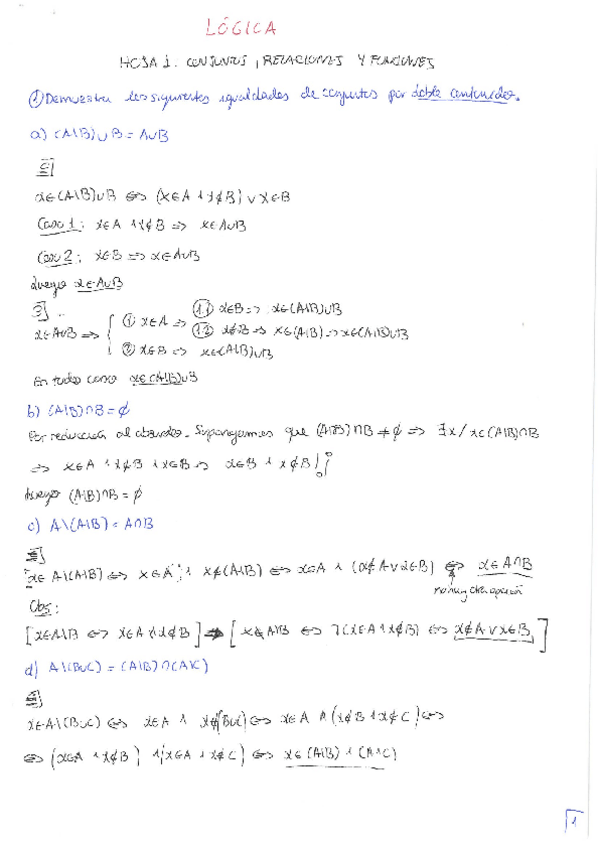 LÓGICA
HOJA 1: CONJUNTOS, RELACIONES Y FUNCIONES
① Demuestra las siguientes igualdades de conjuntos por doble contenido.
a) (A\B)∪B = A∪B
⊆]
x∈(A\B)∪B ⇔ (x∈A ∧ x∉B) ∨ x∈B
Caso 1: x∈A ∧ x∉B ⇒ x∈A∪B
Caso 2: x∈B ⇒ x∈A∪B
Luego x∈A∪B
⊇]
x∈A∪B ⇒ { ① x∈A ⇒ (1.1) x∈B ⇒ x∈(A\B)∪B
(1.2) x∉B ⇒ x∈(A\B) ⇒ x∈(A\B)∪B
② x∈B ⇒ x∈(A\B)∪B
En todo caso x∈(A\B)∪B
b) (A\B)∩B = ∅
Por reducción al absurdo. Supongamos que (A\B)∩B ≠ ∅ ⇒ ∃x / x∈(A\B)∩B
⇒ x∈A ∧ x∉B ∧ x∈B ⇒ x∈B ∧ x∉B!¡
Luego (A\B)∩B = ∅
c) A\(A\B) = A∩B
⊆]
x∈A\(A\B) ⇔ x∈A ∧ x∉(A\B) ⇔ x∈A ∧ (x∉A ∨ x∈B) ⇔ x∈A∩B
no hay otra opción
Obs:
[x∈A\B ⇔ x∈A ∧ x∉B] ⇒ [x∉A\B ⇔ ¬(x∈A ∧ x∉B) ⇔ x∉A ∨ x∈B]
d) A\(B∪C) = (A\B)∩(A\C)
⊆]
x∈A\(B∪C) ⇔ x∈A ∧ x∉(B∪C) ⇔ x∈A ∧ (x∉B ∧ x∉C) ⇔
⇔ (x∈A ∧ x∉B) ∧ (x∈A ∧ x∉C) ⇔ x∈(A\B) ∧ (A\C)
1